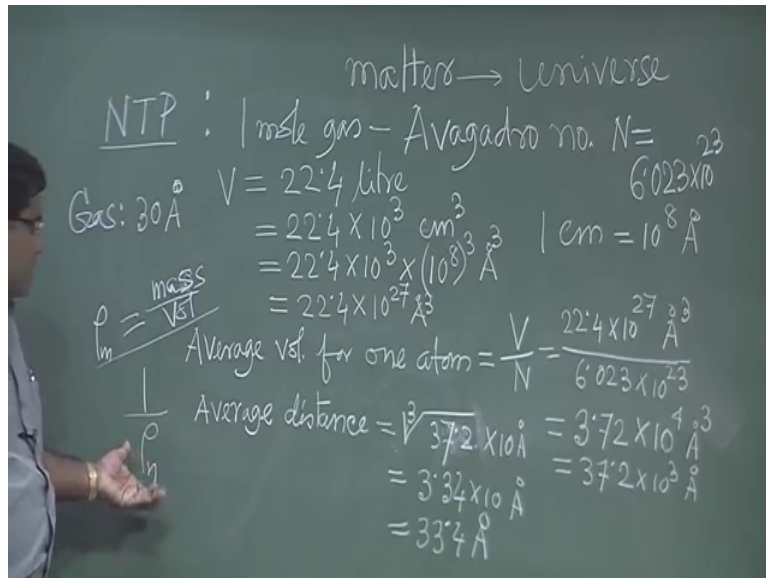 matter → Universe
NTP : 1 mole gas – Avagadro no. N =
6·023×10²³
Gas: 30 Å
V = 22·4 litre
= 22·4 × 10³ cm³
1 cm = 10⁸ Å
= 22·4 × 10³ × (10⁸)³ Å³
= 22·4 × 10²⁷ Å³
ρₘ = mass/Vol
Average vol. for one atom = V/N = 22·4 × 10²⁷ Å³ / 6·023 × 10²³
= 3·72 × 10⁴ Å³
= 37·2 × 10³ Å
1/ρₙ
Average distance = ³√37·2 × 10 Å
= 3·34 × 10 Å
= 33·4 Å